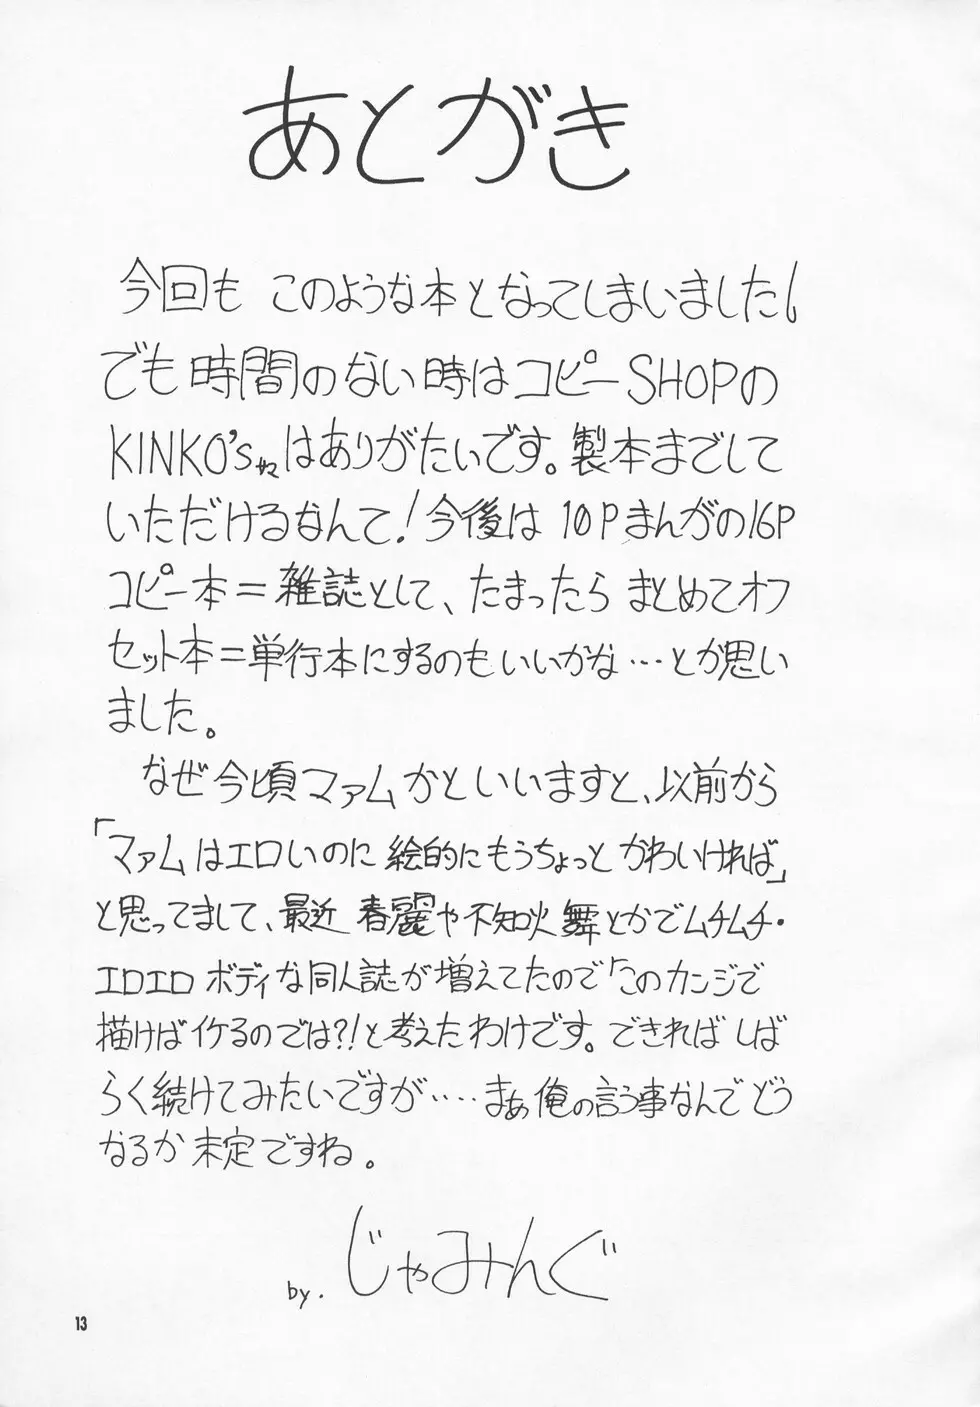 あとがき
今回も このような本となってしまいました!
でも時間のない時はコピーSHOPの
KINKO'sさまはありがたいです。製本までして
いただけるなんて!今後は 10Pまんがの16P
コピー本=雑誌として、たまったら まとめてオフ
セット本=単行本にするのもいいかな…とか思い
ました。
なぜ今頃マァムかといいますと、以前から
「マァムはエロいのに 絵的にもうちょっと かわいければ」
と思ってまして、最近 春麗や不知火舞とかでムチムチ・
エロエロ ボディな同人誌が増えてたので「このカンジで
描けばイケるのでは?!」と考えたわけです。できれば しば
らく続けてみたいですが‥‥まぁ俺の言う事なんで どう
なるか 未定ですね。
by. じゃみんぐ
13